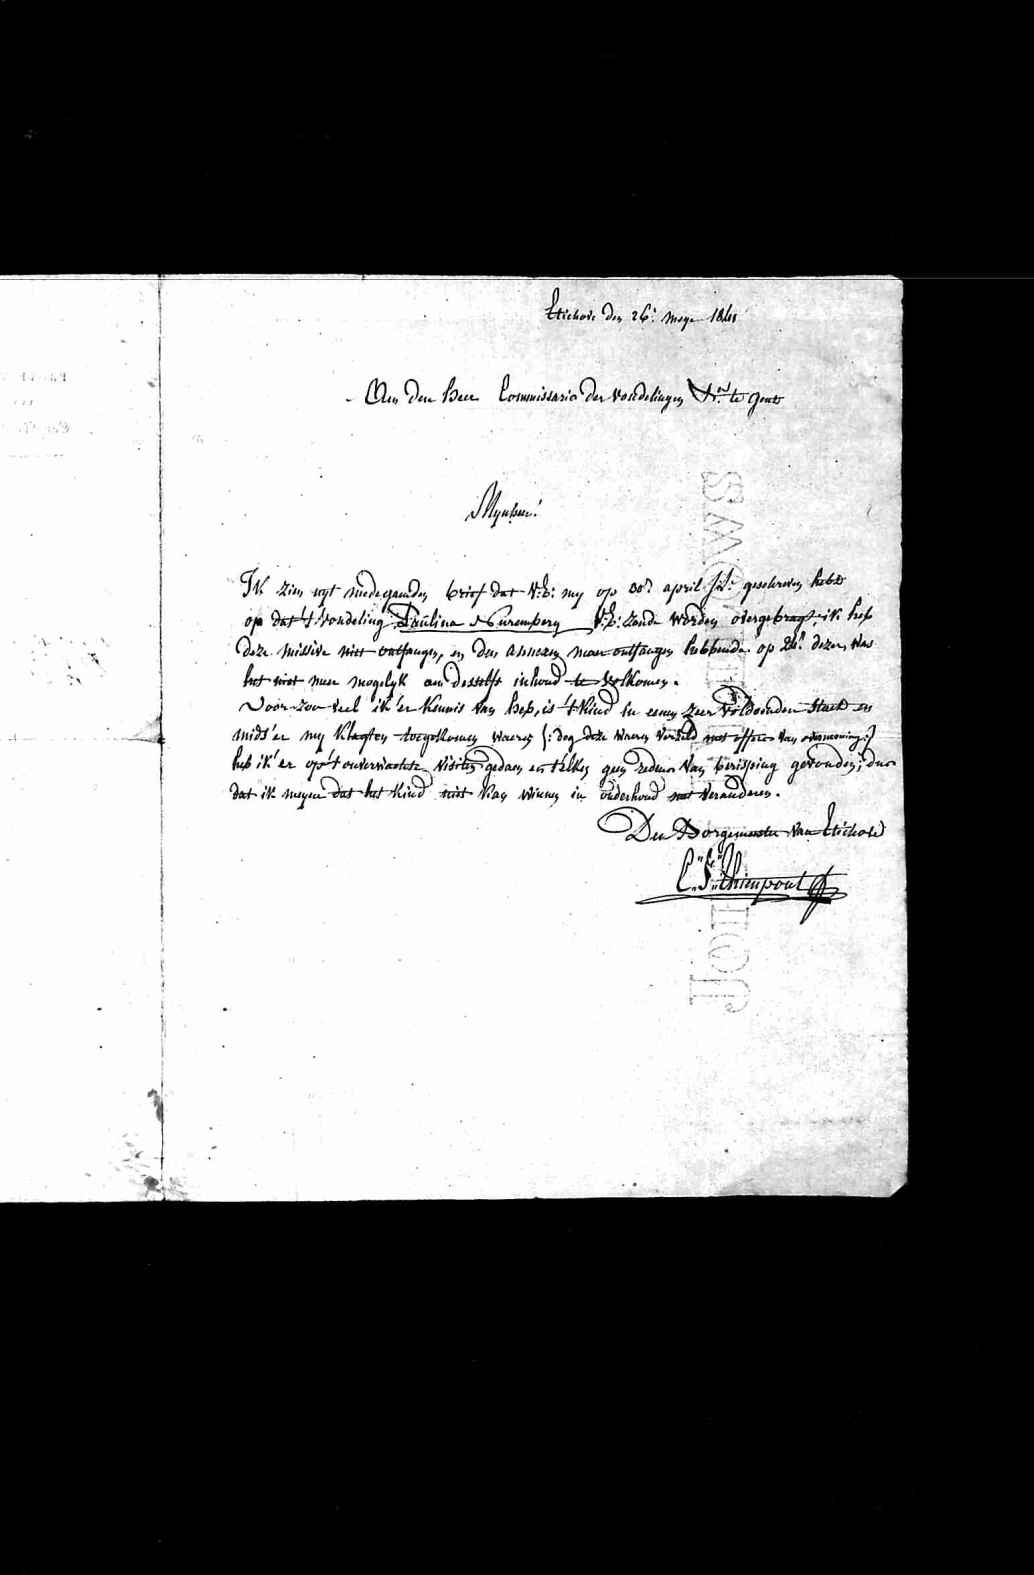 Etichove den 26: meye 1841
Aen den Heer Commissaris der vondelingen te Gent
Mynheer!
Ik zien uyt medegaenden brief dat V:E: my op 30n april geschreven hebt
op dat 't vondeling Paulina Nuremberg V:E: zoude worden overgebragt; ik heb
deze missive niet ontfangen, en den annexen maer ontfangen hebbende op dezer, was
het niet meer mogelyk aen desselfs inhoud te volkomen.
Voor zoo veel ik 'er kennis van heb, is 't kind in eenen zeer voldoenden staet en
mids 'er my klagten toegekomen waeren (: dog deze waeren verzeld met offers van :)
heb ik 'er op 't onverwachts visiten gedaen en t'elkes geen redens van berisping gevonden; dus
dat ik meyne dat het kind niet kan winnen in onderhoud met veranderen.
Den Borgemeester van Etichove
C. F. Thienpont
TOH